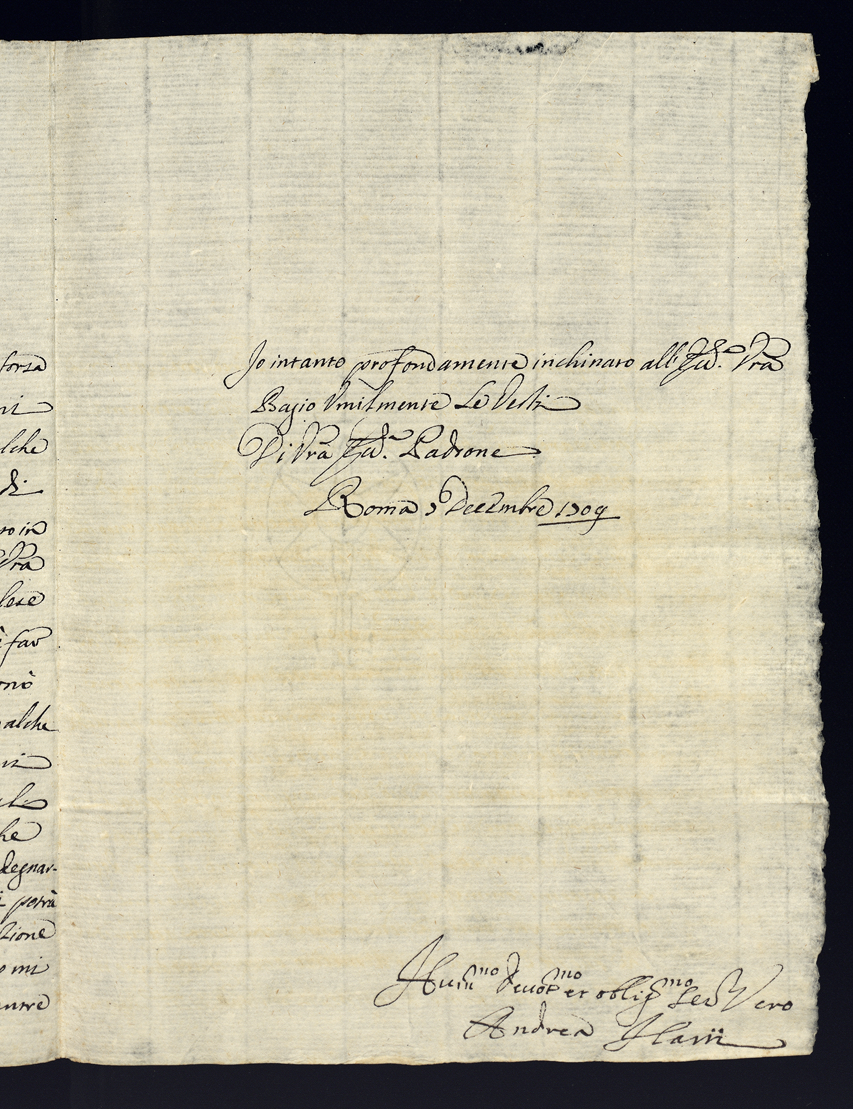 forza
ni
lche
di
ro in
Vrã
lese
è fav
onò
ualche
ni
he
degnar-
potrà
zione
o mi
entre
Jo intanto profondamente inchinato all' Vrã
Bagio Vmilmente Le Vesti
Di Vrã Padrone
Roma 9 Decembre 1709
Hum.mo Deuot.mo et oblig.mo Ser Vero
Andrea